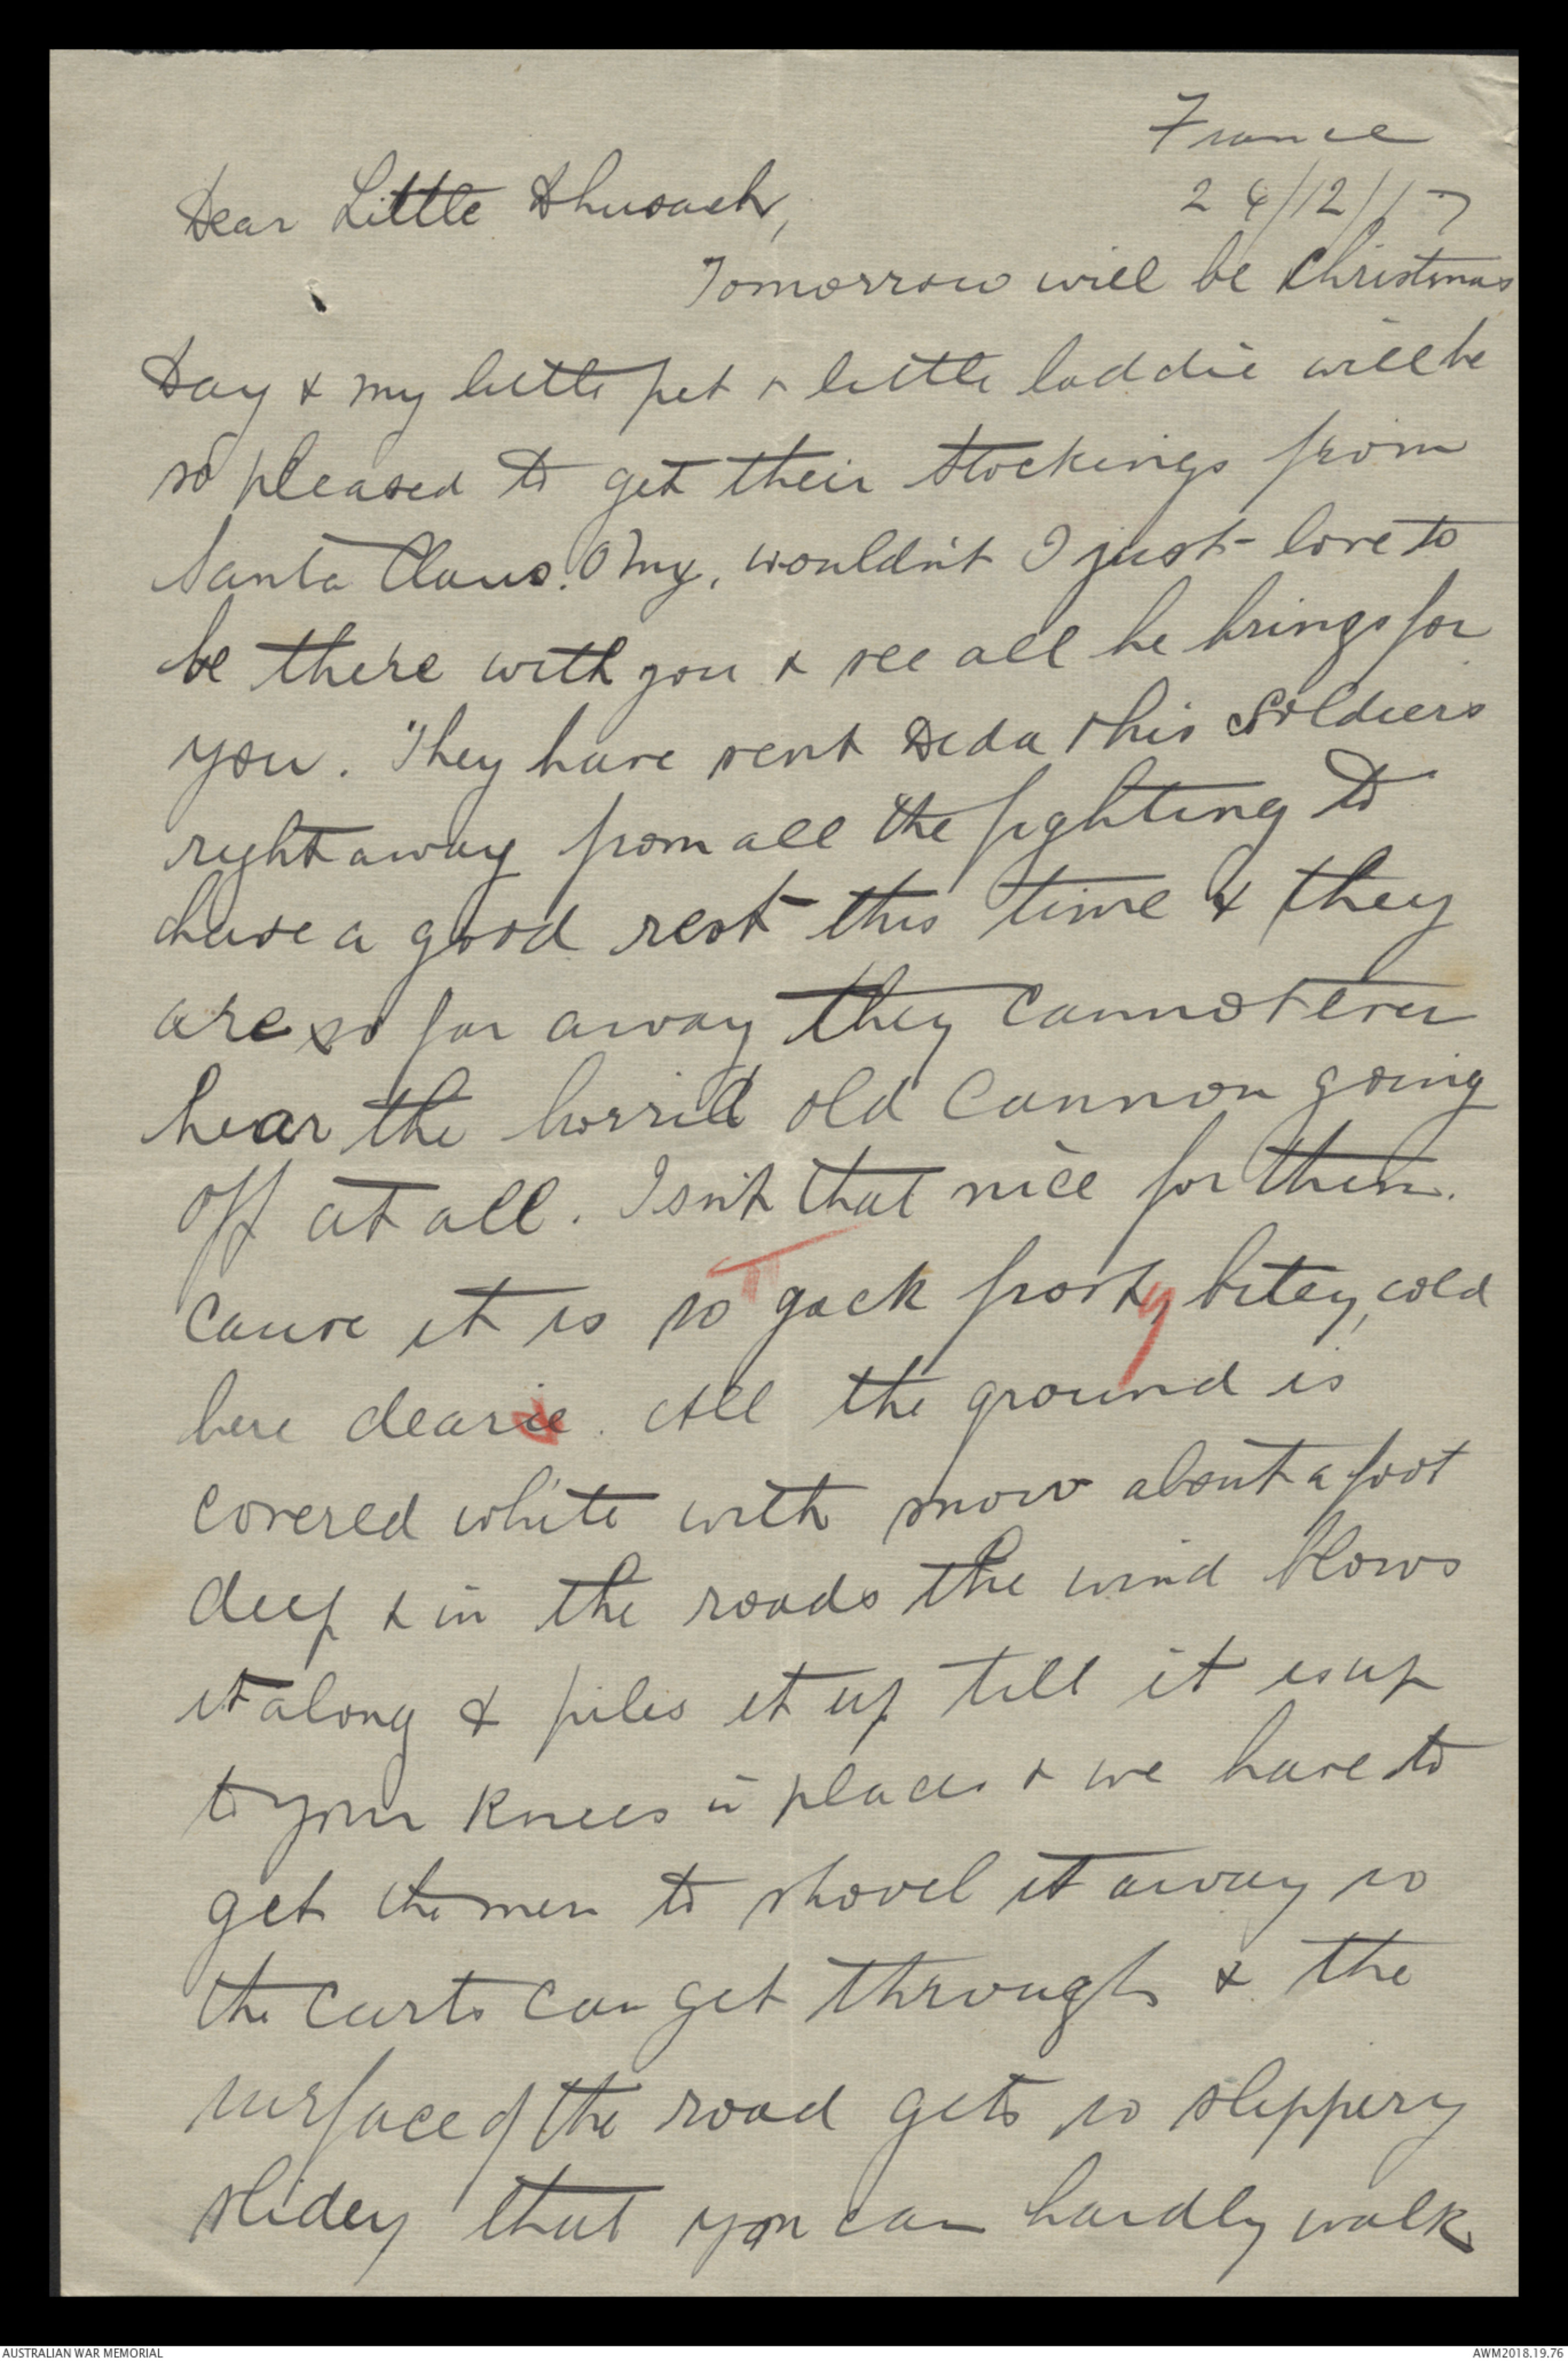 France
24/12/17
Dear Little Dhusach,
Tomorrow will be Christmas
Day & my little pet & little laddie will be
so pleased to get their stockings from
Santa Claus. O my, wouldn't I just love to
be there with you & see all he brings for
you. They have sent Deda & his Soldiers
right away from all the fighting to
have a good rest this time & they
are so far away they cannot even
hear the horrid old Cannon going
off at all. Isn't that nice for them.
Cause it is so gack frosty bitey, cold
here dearie. All the ground is
covered white with snow about a foot
deep & in the roads the wind blows
it along & piles it up till it is up
to your knees in places & we have to
get the men to shovel it away so
the carts can get through & the
surface of the road gets so slippery
slidey that you can hardly walk
AUSTRALIAN WAR MEMORIAL
AWM2018.19.76